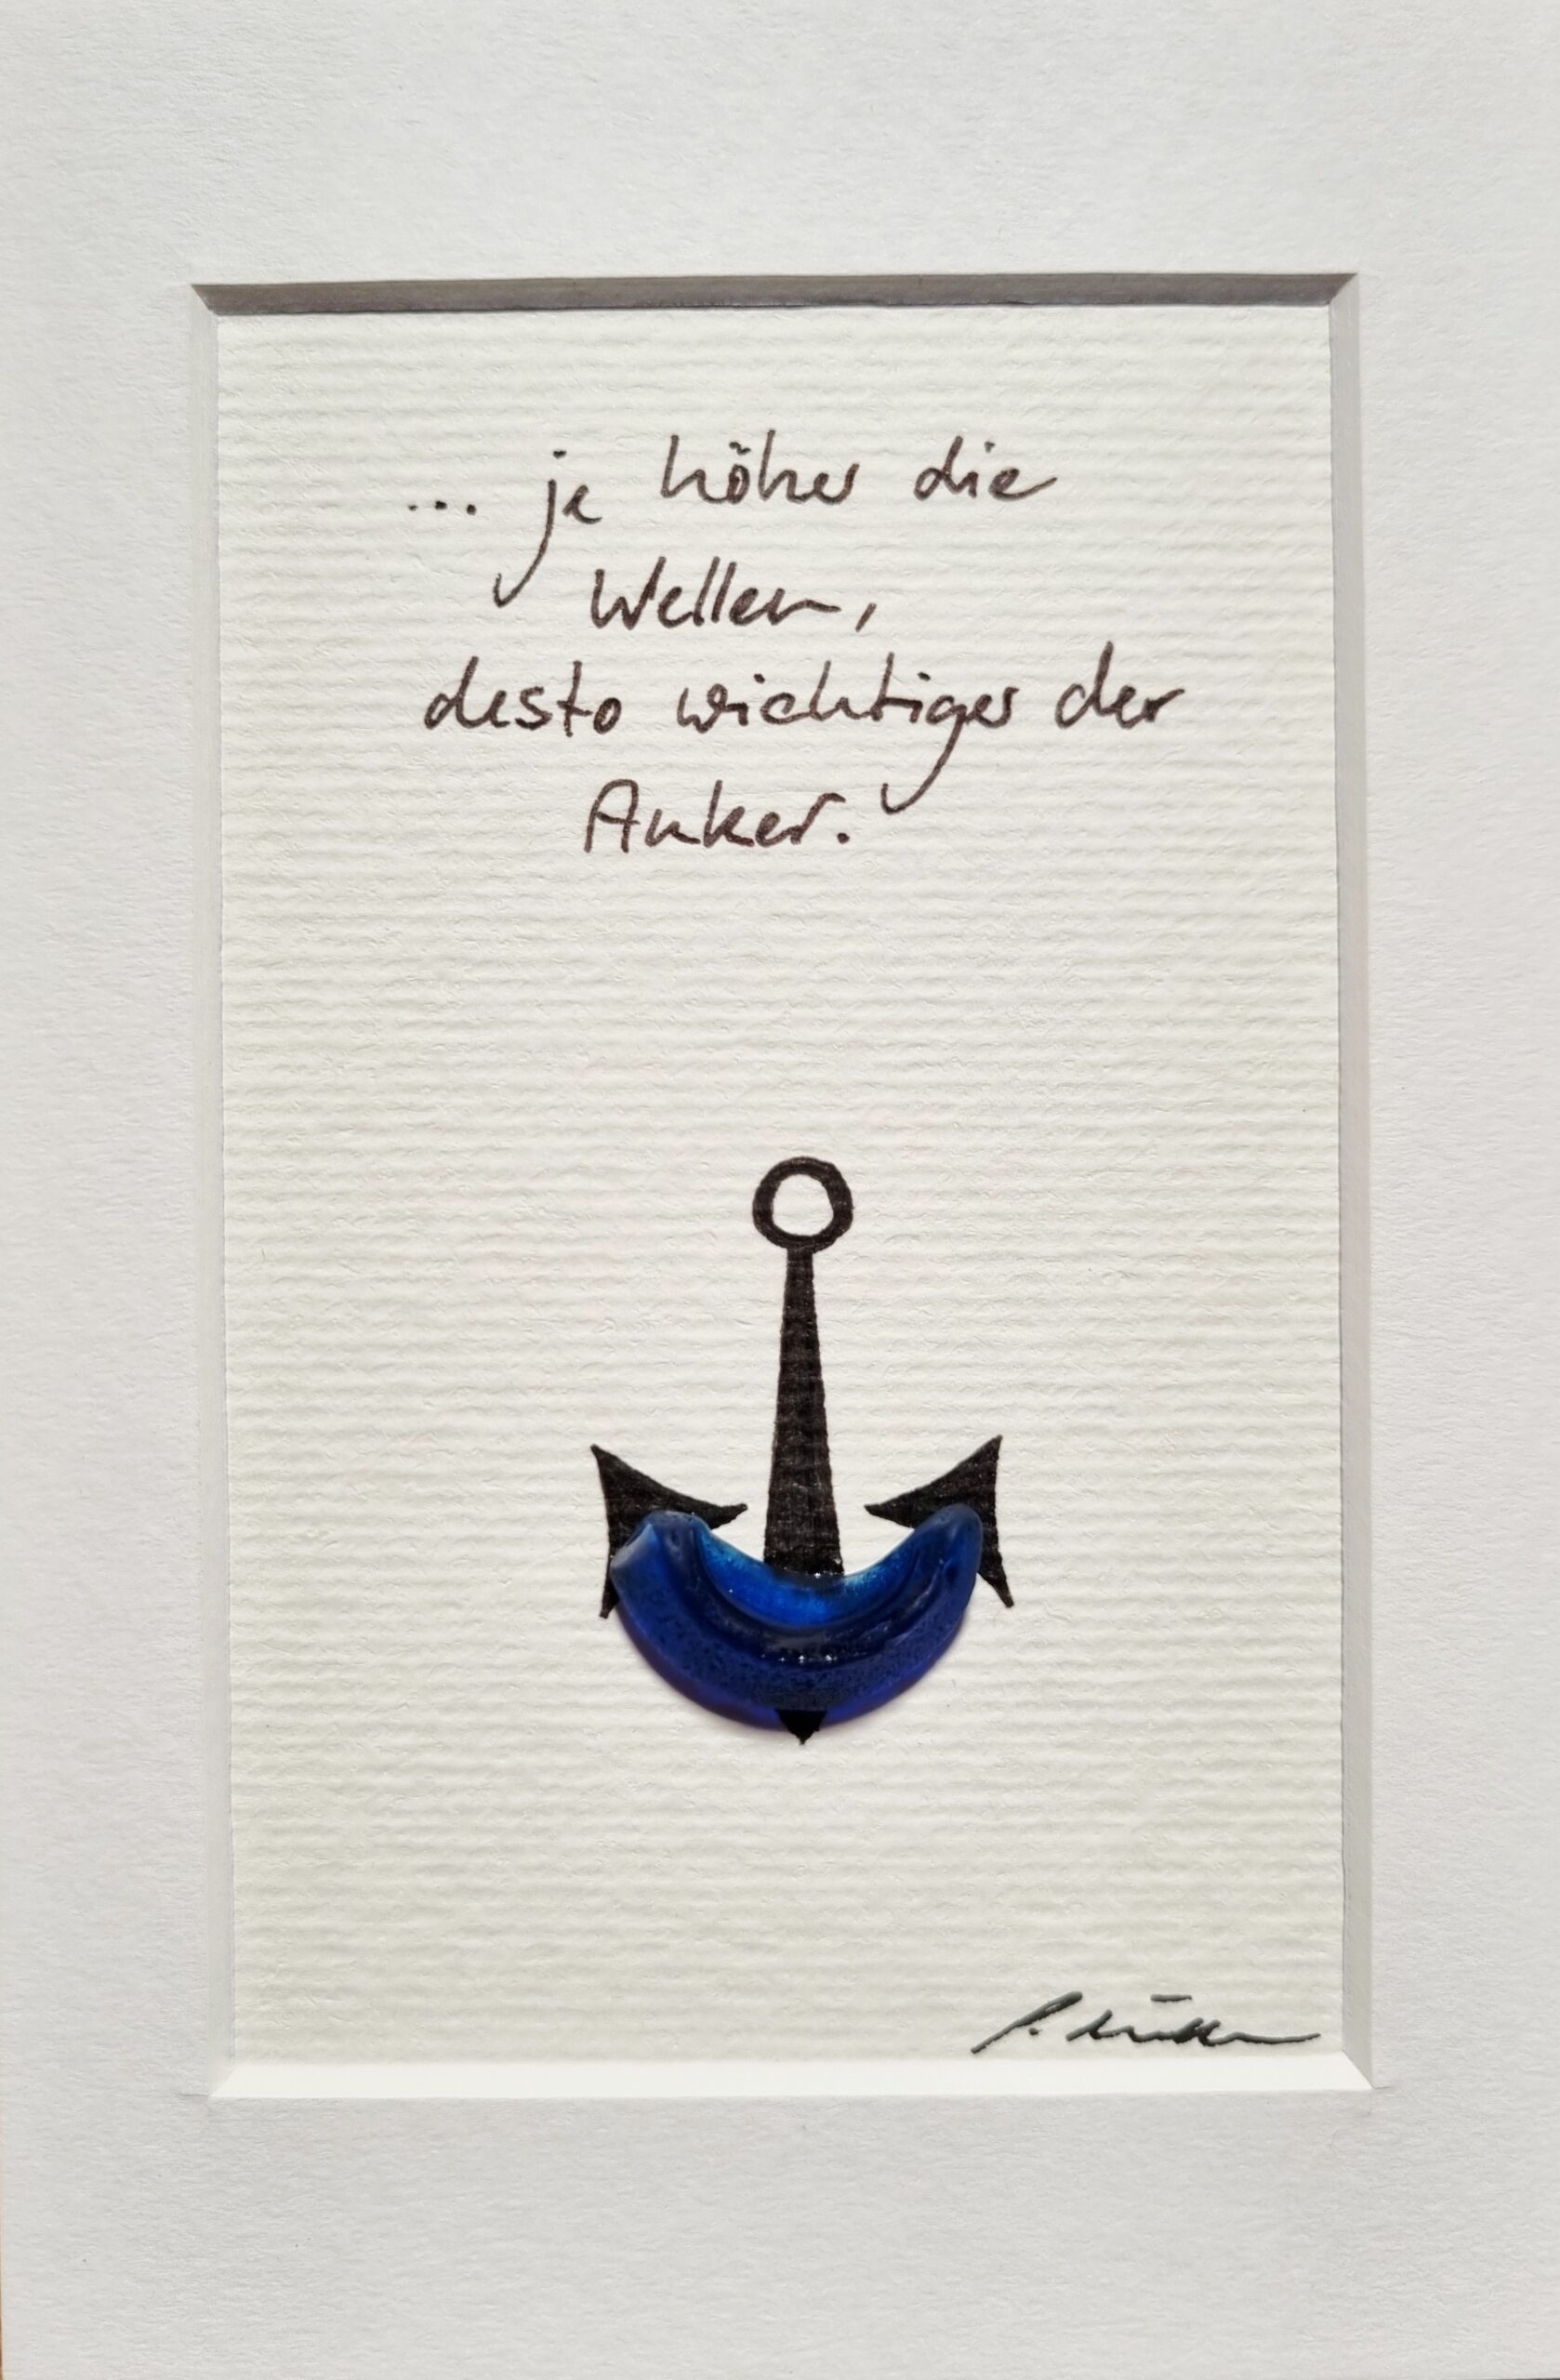 ... je höher die
Wellen,
desto wichtiger der
Anker.